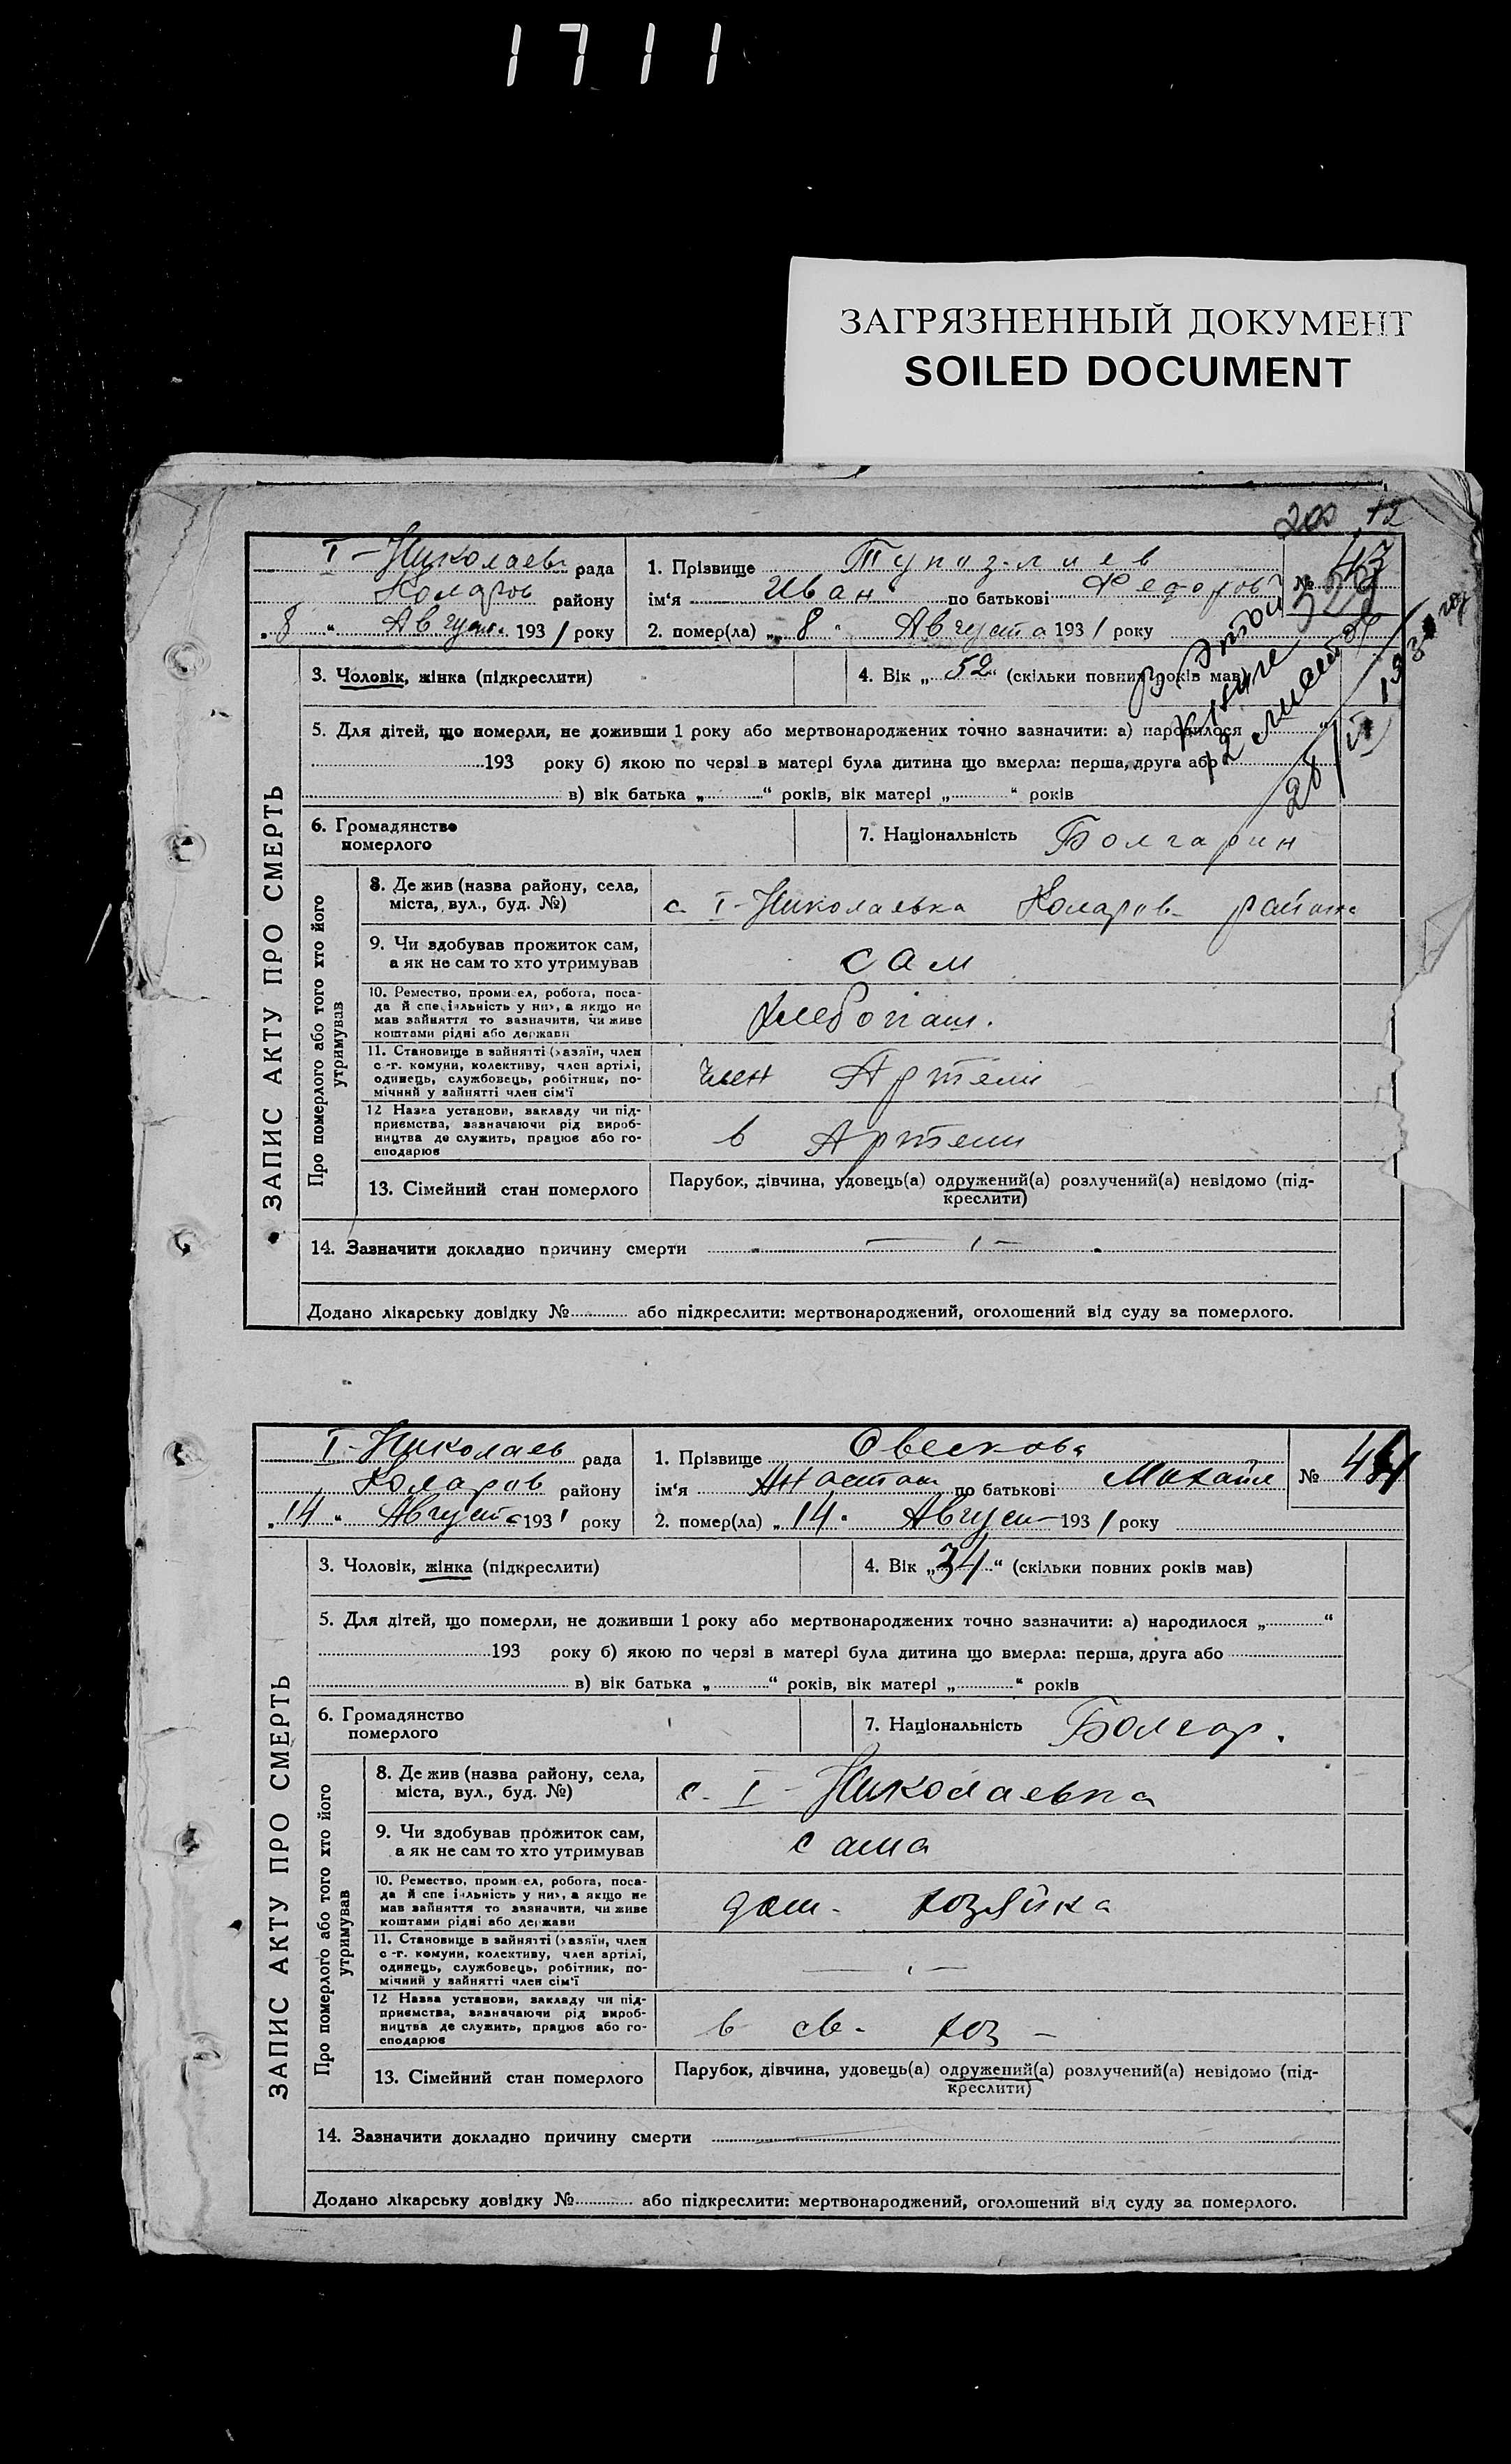 1711
ЗАГРЯЗНЕННЫЙ ДОКУМЕНТ
SOILED DOCUMENT
ЗАПИС АКТУ ПРО СМЕРТЬ
I-Николаев рада
Коларов району
„8“ Август. 1931 року
1. Прізвище
№
ім‘я Иван по батькові Федоров
2. помер(ла) „8“ Августа 1931 року
В этой
книге
12 листов
3. Чоловік, жінка (підкреслити)
4. Вік „52“ (скільки повних років мав)
5. Для дітей, що померли, не доживши 1 року або мертвонароджених точно зазначити: а) народилося „
193 року б) якою по черзі в матері була дитина що вмерла: перша, друга або
в) вік батька „ “ років, вік матері „ “ років
6. Громадянство
померлого
7. Національність Болгарин
Про померлого або того хто його
утримував
8. Де жив (назва району, села,
міста, вул., буд. №)
с. I-Николаевка Коларов- района
9. Чи здобував прожиток сам,
а як не сам то хто утримував
сам
10. Ремество, промисел, робота, поса-
да й спеціяльність у них, а якщо не
мав зайняття то зазначити, чи живе
коштами рідні або держави
хлебопаш.
11. Становище в зайнятті (хазяїн, член
с.-г. комуни, колективу, член артілі,
одинець, службовець, робітник, по-
мічний у зайнятті член сім‘ї
член Артели
12 Назва установи, закладу чи під-
приємства, зазначаючи рід вироб-
ництва де служить, працює або го-
сподарює
в Артели
13. Сімейний стан померлого
Парубок, дівчина, удовець(а) одружений(а) розлучений(а) невідомо (під-
креслити)
14. Зазначити докладно причину смерти
Додано лікарську довідку № або підкреслити: мертвонароджений, оголошений від суду за померлого.
ЗАПИС АКТУ ПРО СМЕРТЬ
I-Николаев рада
Коларов району
„14“ Августа 1931 року
1. Прізвище Овескова
№
ім‘я по батькові Михайл
2. помер(ла) „14“ Август- 1931 року
3. Чоловік, жінка (підкреслити)
4. Вік „34“ (скільки повних років мав)
5. Для дітей, що померли, не доживши 1 року або мертвонароджених точно зазначити: а) народилося „ “
193 року б) якою по черзі в матері була дитина що вмерла: перша, друга або
в) вік батька „ “ років, вік матері „ “ років
6. Громадянство
померлого
7. Національність Болгар.
Про померлого або того хто його
утримував
8. Де жив (назва району, села,
міста, вул., буд. №)
с. I-Николаевка
9. Чи здобував прожиток сам,
а як не сам то хто утримував
сама
10. Ремество, промисел, робота, поса-
да й спеціяльність у них, а якщо не
мав зайняття то зазначити, чи живе
коштами рідні або держави
дом- хозяйка
11. Становище в зайнятті (хазяїн, член
с.-г. комуни, колективу, член артілі,
одинець, службовець, робітник, по-
мічний у зайнятті член сім‘ї
12 Назва установи, закладу чи під-
приємства, зазначаючи рід вироб-
ництва де служить, працює або го-
сподарює
в св- хоз-
13. Сімейний стан померлого
Парубок, дівчина, удовець(а) одружений(а) розлучений(а) невідомо (під-
креслити)
14. Зазначити докладно причину смерти
Додано лікарську довідку № або підкреслити: мертвонароджений, оголошений від суду за померлого.